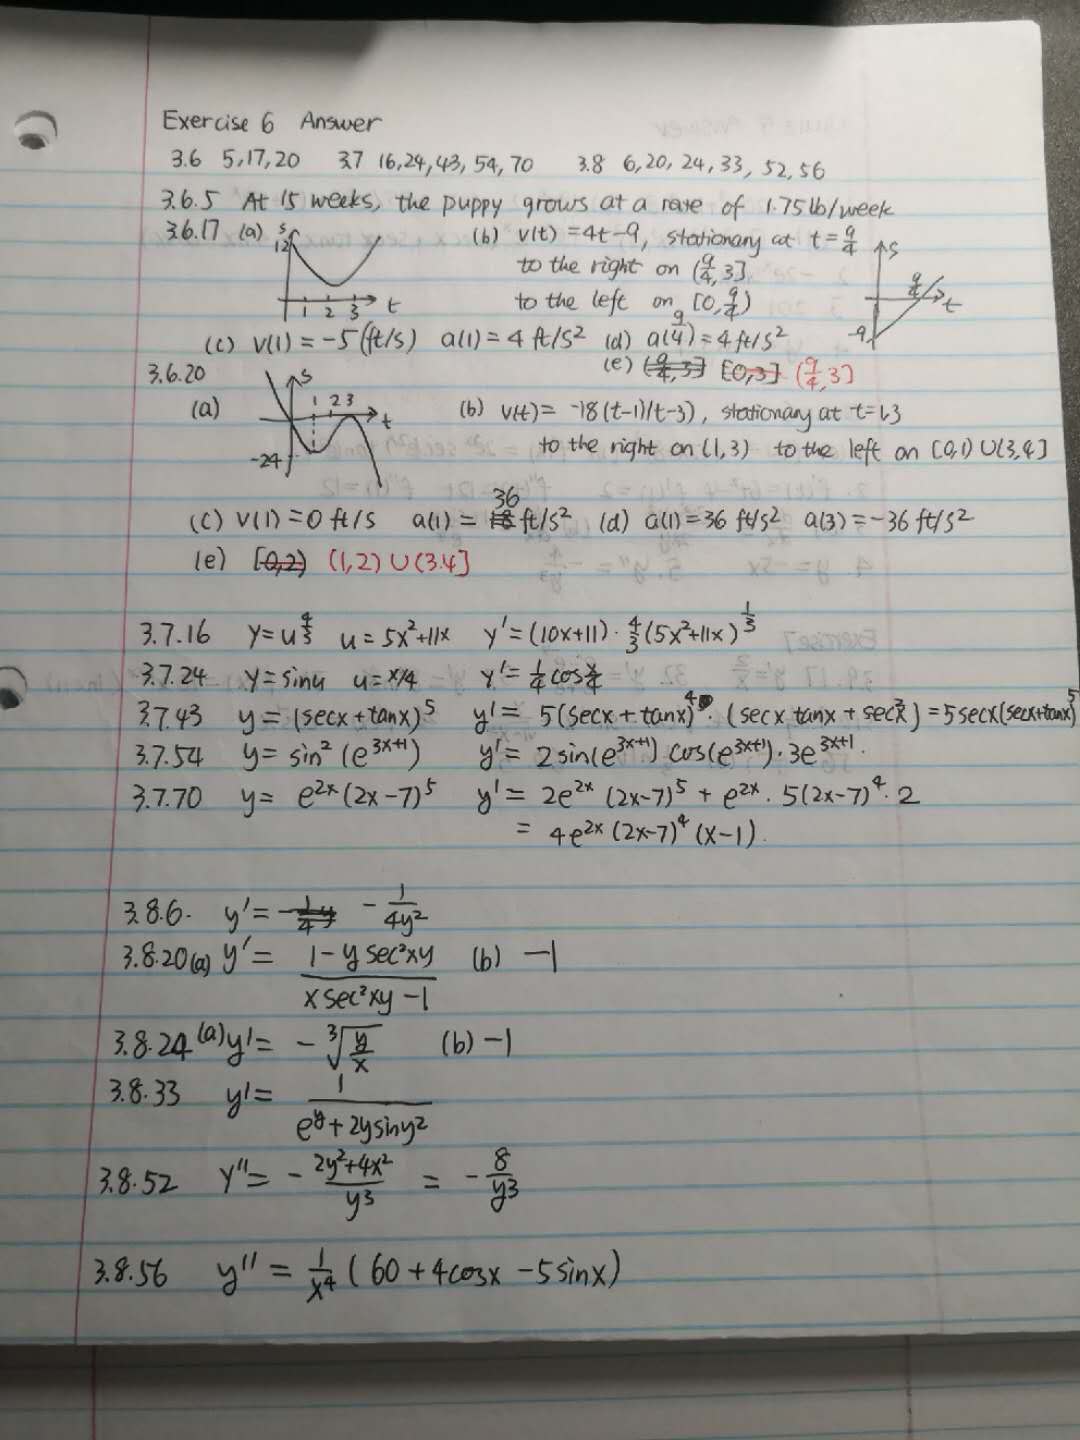 Exercise 6 Answer
3.6 5,17,20 3.7 16,24,43,54,70 3.8 6,20,24,33,52,56
3.6.5 At 15 weeks, the puppy grows at a rate of 1.75 lb/week
3.6.17 (a) s 12 1 2 3 t (b) v(t) = 4t-9, stationary at t = 9/4
to the right on (9/4, 3]
to the left on [0, 9/4)
s 9/4 t -9
(c) v(1) = -5 (ft/s) a(1) = 4 ft/s² (d) a(9/4) = 4 ft/s²
(e) (9/4, 3]
3.6.20
(a) s 1 2 3 t -24 (b) v(t) = -18(t-1)(t-3), stationary at t=1,3
to the right on (1,3) to the left on [0,1) ∪ (3,4]
(c) v(1) = 0 ft/s a(1) = 36 ft/s² (d) a(1) = 36 ft/s² a(3) = -36 ft/s²
(e) (1,2) ∪ (3.4]
3.7.16 y = u^(4/3) u = 5x²+11x y' = (10x+11) · 4/3 (5x²+11x)^(1/3)
3.7.24 y = sinu u = x/4 y' = 1/4 cos x/4
3.7.43 y = (secx + tanx)⁵ y' = 5(secx + tanx)⁴ · (secx tanx + sec²x) = 5secx(secx+tanx)⁵
3.7.54 y = sin²(e^(3x+1)) y' = 2sin(e^(3x+1)) cos(e^(3x+1)) · 3e^(3x+1).
3.7.70 y = e^(2x)(2x-7)⁵ y' = 2e^(2x) (2x-7)⁵ + e^(2x) · 5(2x-7)⁴ · 2
= 4e^(2x) (2x-7)⁴ (x-1).
3.8.6. y' = -1/(4y²)
3.8.20 (a) y' = (1 - y sec²xy)/(x sec²xy - 1) (b) -1
3.8.24 (a) y' = -∛(y/x) (b) -1
3.8.33 y' = 1/(e^y + 2y siny²)
3.8.52 y'' = -(2y²+4x²)/y³ = -8/y³
3.8.56 y'' = 1/x⁴ (60 + 4cosx - 5sinx)